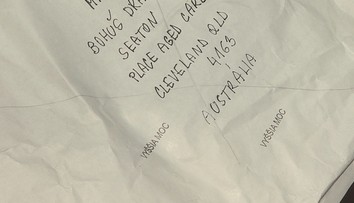 BOHUŠ
SEATON
PLACE AGED CARE
CLEVELAND QLD
4163
AUSTRALIA
VYŠŠIA MOC
VYŠŠIA MOC